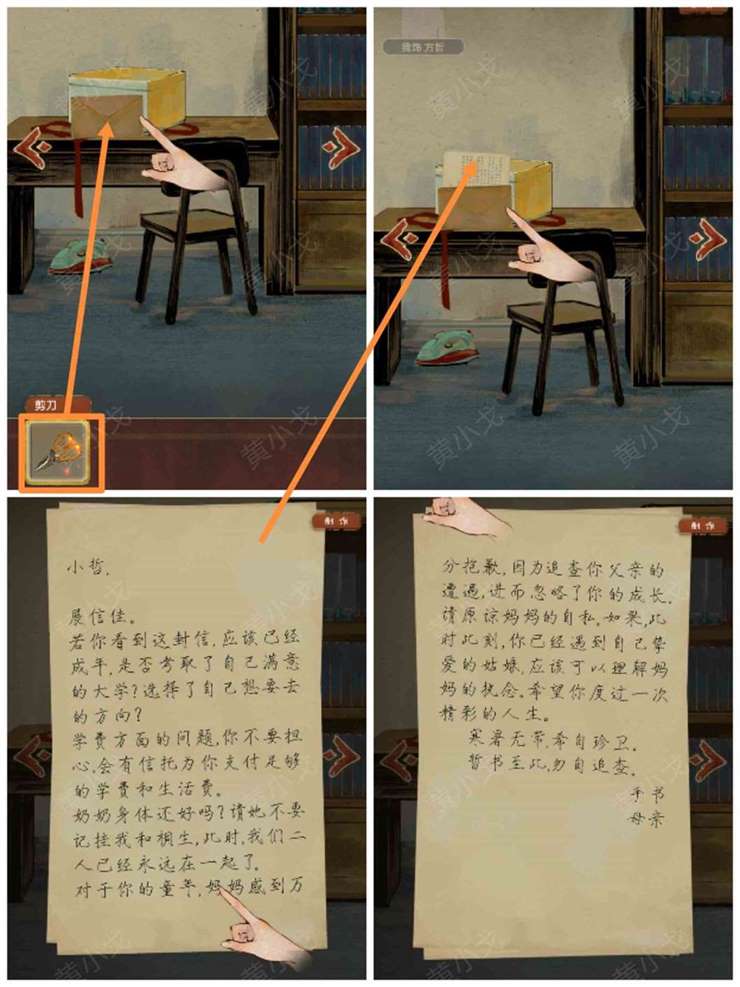 黄小戈
剪刀
黄小戈
方哲
黄小戈
小哲,
展信佳。
若你看到这封信,应该已经
成年,是否考取了自己满意
的大学?选择了自己想要去
的方向?
学费方面的问题,你不要担
心,会有信托为你支付足够
的学费和生活费。
奶奶身体还好吗?请她不要
记挂我和桐生,此时,我们二
人已经永远在一起了。
对于你的童年,妈妈感到万
黄小戈
分抱歉,因为追查你父亲的
遭遇,进而忽略了你的成长。
请原谅妈妈的自私,如果,此
时此刻,你已经遇到自己挚
爱的姑娘,应该可以理解妈
妈的执念。希望你度过一次
精彩的人生。
寒暑无常,希自珍卫。
哲书至此,勿自追查。
手书
母亲
黄小戈